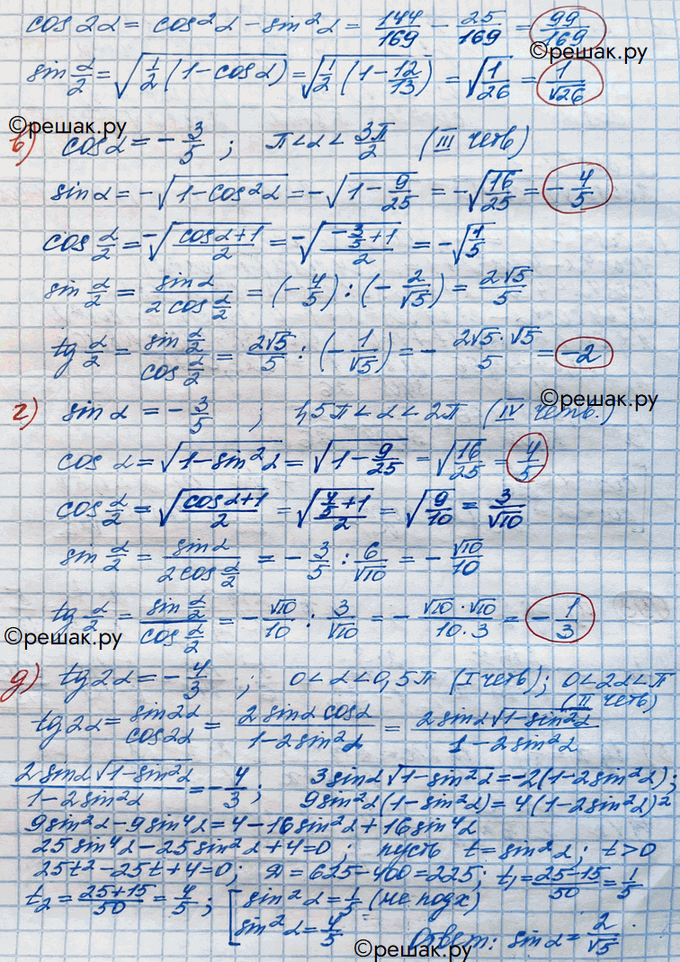 cos 2α = cos²α - sin²α = 144/169 - 25/169 = 99/169
©решак.ру
sin α/2 = √(1/2 (1 - cos α)) = √(1/2 (1 - 12/13)) = √(1/26) = 1/√26
©решак.ру
в) cos α = - 3/5 ; π < α < 3π/2 (III четв)
sin α = -√(1 - cos²α) = -√(1 - 9/25) = -√(16/25) = - 4/5
cos α/2 = -√((cos α + 1)/2) = -√((-3/5 + 1)/2) = -√(1/5)
sin α/2 = sin α/(2 cos α/2) = (- 4/5) : (- 2/√5) = 2√5/5
tg α/2 = (sin α/2)/(cos α/2) = 2√5/5 : (- 1/√5) = - (2√5 · √5)/5 = -2
©решак.ру
г) sin α = - 3/5 ; 1,5π < α < 2π (IV четв.)
cos α = √(1 - sin²α) = √(1 - 9/25) = √(16/25) = 4/5
cos α/2 = √((cos α + 1)/2) = √((4/5 + 1)/2) = √(9/10) = 3/√10
sin α/2 = sin α/(2 cos α/2) = - 3/5 : 6/√10 = - √10/10
tg α/2 = (sin α/2)/(cos α/2) = - √10/10 : 3/√10 = - (√10 · √10)/(10 · 3) = - 1/3
©решак.ру
д) tg 2α = - 4/3 ; 0 < α < 0,5π (I четв); 0 < 2α < π
(II четв)
tg 2α = sin 2α/cos 2α = (2 sin α cos α)/(1 - 2 sin²α) = (2 sin α √(1 - sin²α))/(1 - 2 sin²α)
(2 sin α √(1 - sin²α))/(1 - 2 sin²α) = - 4/3 ; 3 sin α √(1 - sin²α) = -2(1 - 2 sin²α);
9 sin²α (1 - sin²α) = 4(1 - 2 sin²α)²
9 sin²α - 9 sin⁴α = 4 - 16 sin²α + 16 sin⁴α
25 sin⁴α - 25 sin²α + 4 = 0 ; пусть t = sin²α ; t > 0
25t² - 25t + 4 = 0; D = 625 - 400 = 225; t₁ = (25 - 15)/50 = 1/5
t₂ = (25 + 15)/50 = 4/5 ; [ sin²α = 1/5 (не подх)
sin²α = 4/5
Ответ: sin α = 2/√5
©решак.ру